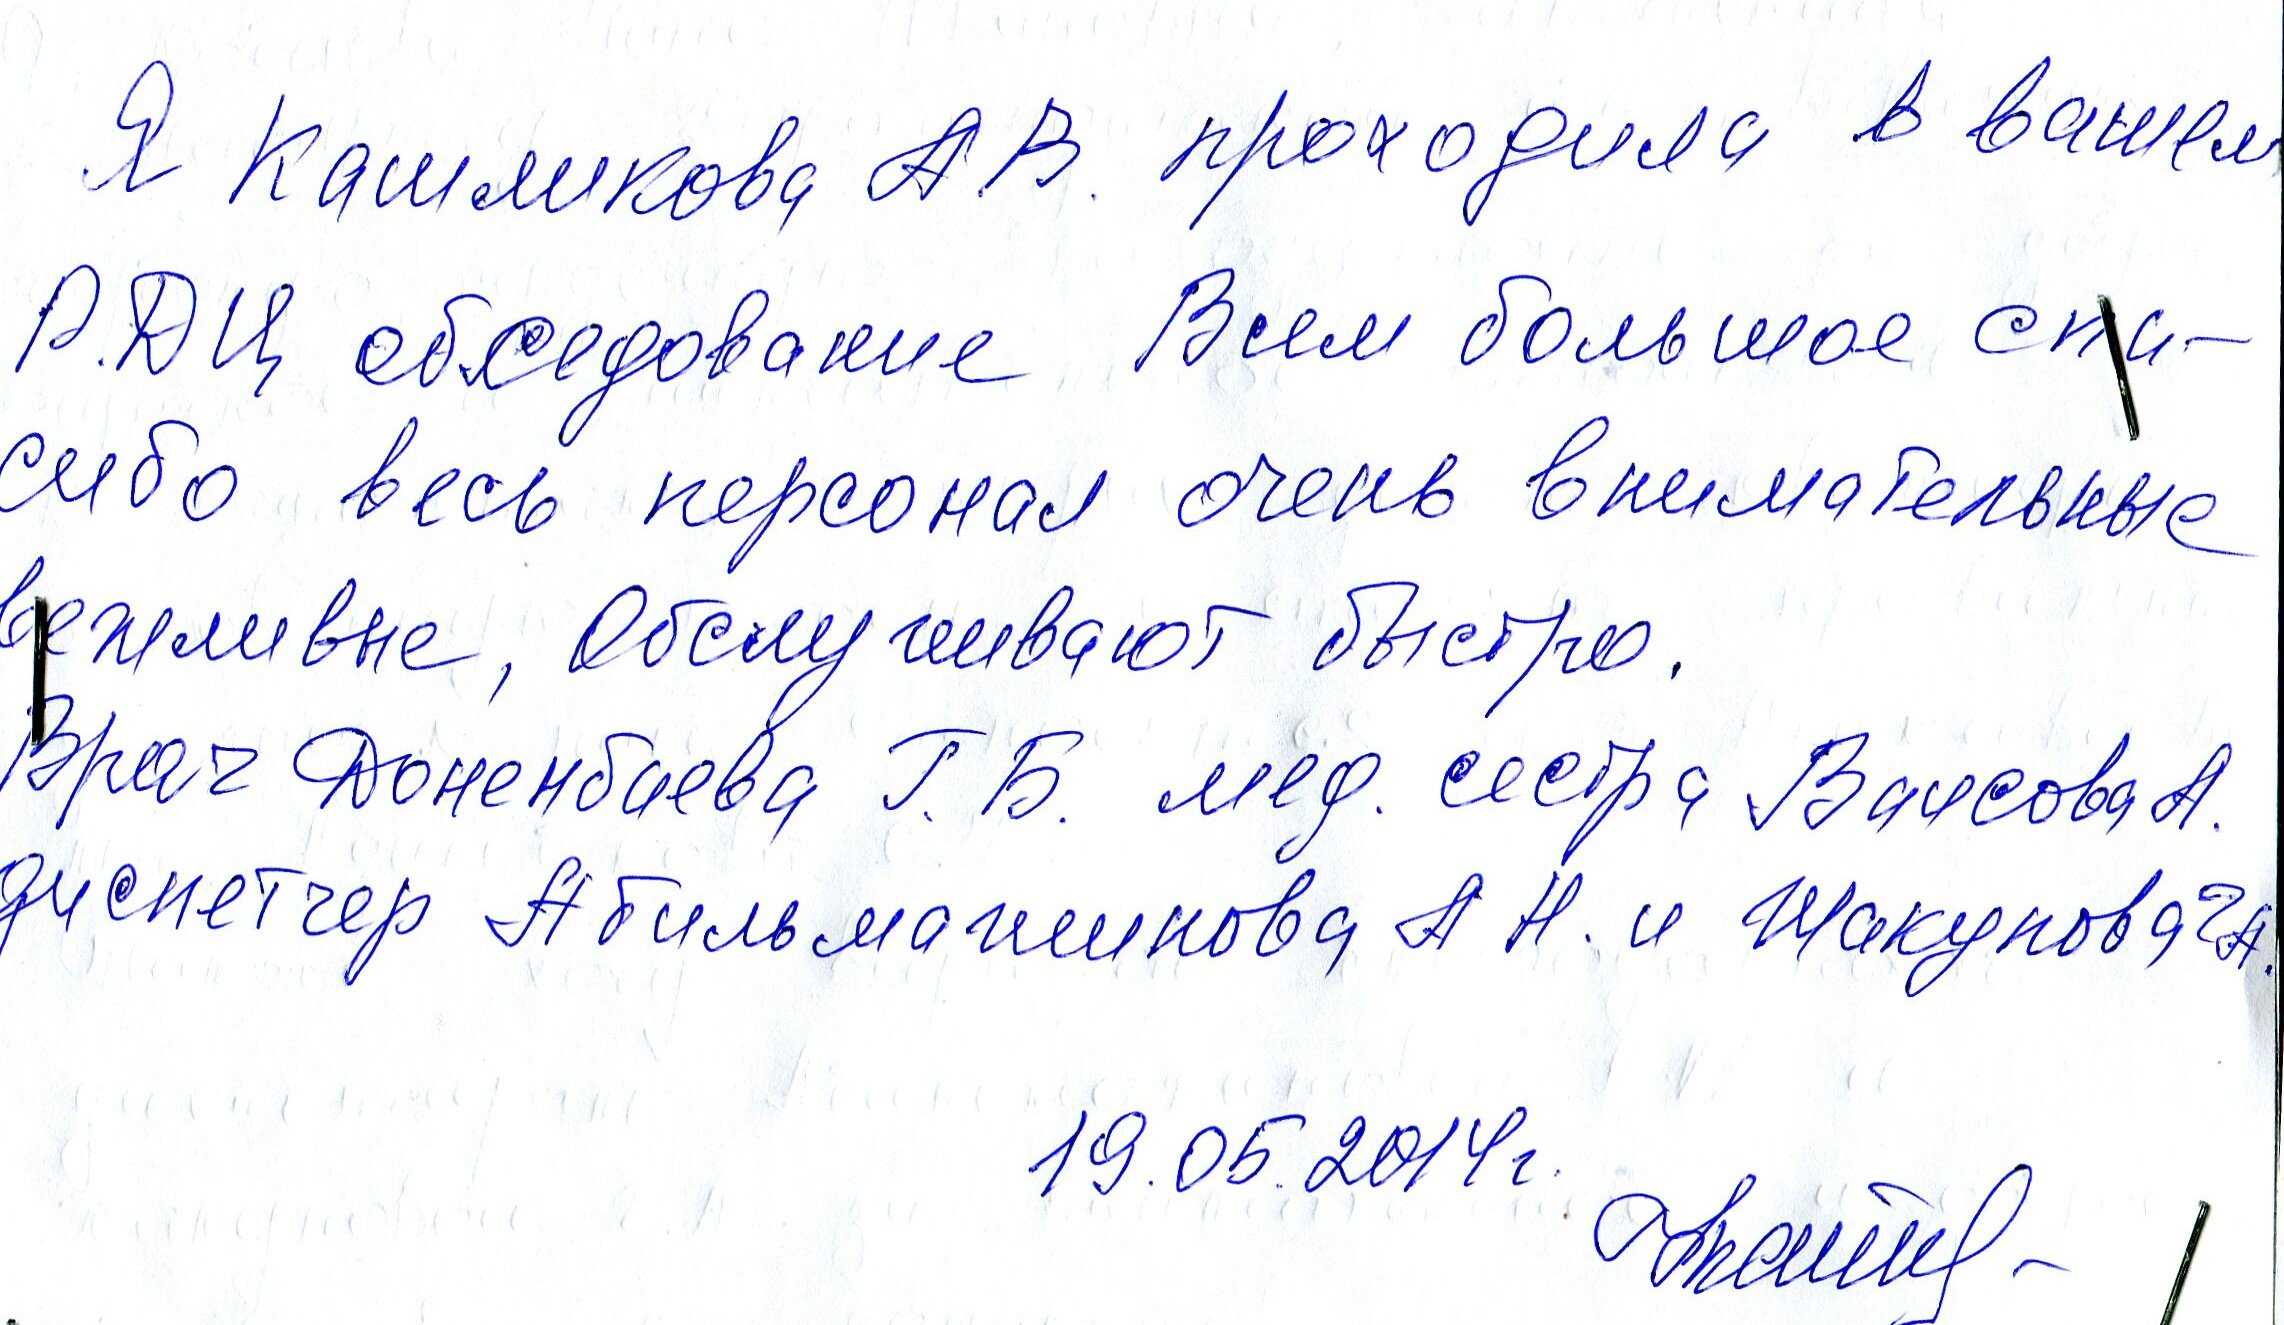 Я Кашликова А.В. проходила в вашем
Р.ДЦ обследование Всем большое спа-
сибо весь персонал очень внимательные
вежливые, Обслуживают быстро.
Врач Доненбаева Г.Б. мед. сестра Ваисова А.
диспетчер Абильмажинова А Н. и Жакупова Г.А.
19.05.2014г.